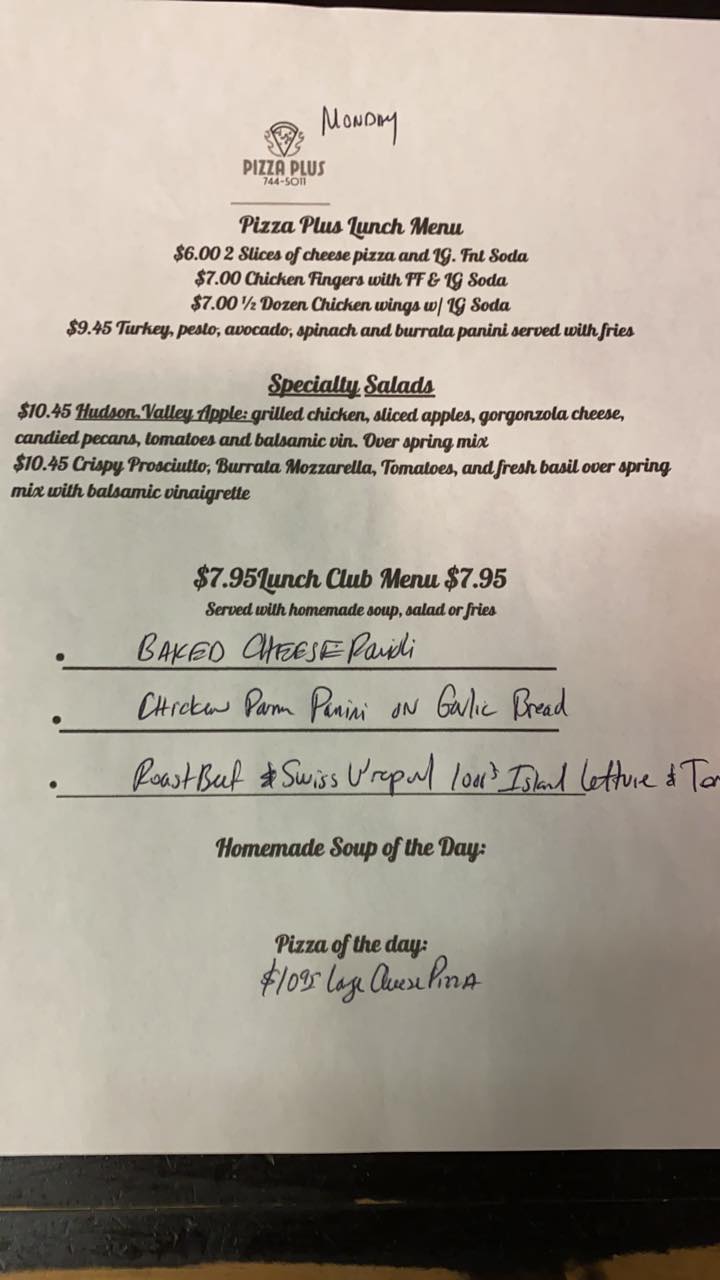 MONDAY
PIZZA PLUS
744-5011
Pizza Plus Lunch Menu
$6.00 2 Slices of cheese pizza and LG. Fnt Soda
$7.00 Chicken Fingers with FF & LG Soda
$7.00 ½ Dozen Chicken wings w/ LG Soda
$9.45 Turkey, pesto, avocado, spinach and burrata panini served with fries
Specialty Salads
$10.45 Hudson. Valley Apple: grilled chicken, sliced apples, gorgonzola cheese,
candied pecans, tomatoes and balsamic vin. Over spring mix
$10.45 Crispy Prosciutto, Burrata Mozzarella, Tomatoes, and fresh basil over spring
mix with balsamic vinaigrette
$7.95Lunch Club Menu $7.95
Served with homemade soup, salad or fries
BAKED CHEESE Ravioli
Chicken Parm Panini ON Garlic Bread
Roast Beef & Swiss Wrap w/ 1000's Island lettuce &
Homemade Soup of the Day:
Pizza of the day:
$1095 Large Cheese Pizza